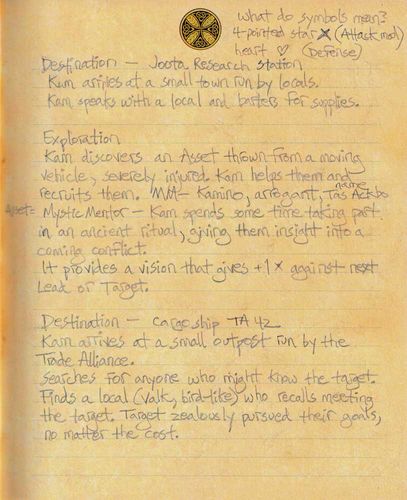 What do symbols mean?
4-pointed star (Attack mod)
heart ♡ (Defense)
Destination – Joota Research Station
Kam arrives at a small town run by locals.
Kam speaks with a local and barters for supplies.
Exploration
Kam discovers an Asset thrown from a moving
vehicle, severely injured. Kam helps them and
recruits them. MM – Kamino, arrogant, name Tas Ackbo
Asset = Mystic Mentor – Kam spends some time taking part
in an ancient ritual, giving them insight into a
coming conflict.
It provides a vision that gives +1 against next
Lead or Target.
Destination – cargo ship TA 42
Kam arrives at a small outpost run by the
Trade Alliance.
Searches for anyone who might know the target.
Finds a local (Valk, bird-like) who recalls meeting
the target. Target zealously pursued their goals,
no matter the cost.